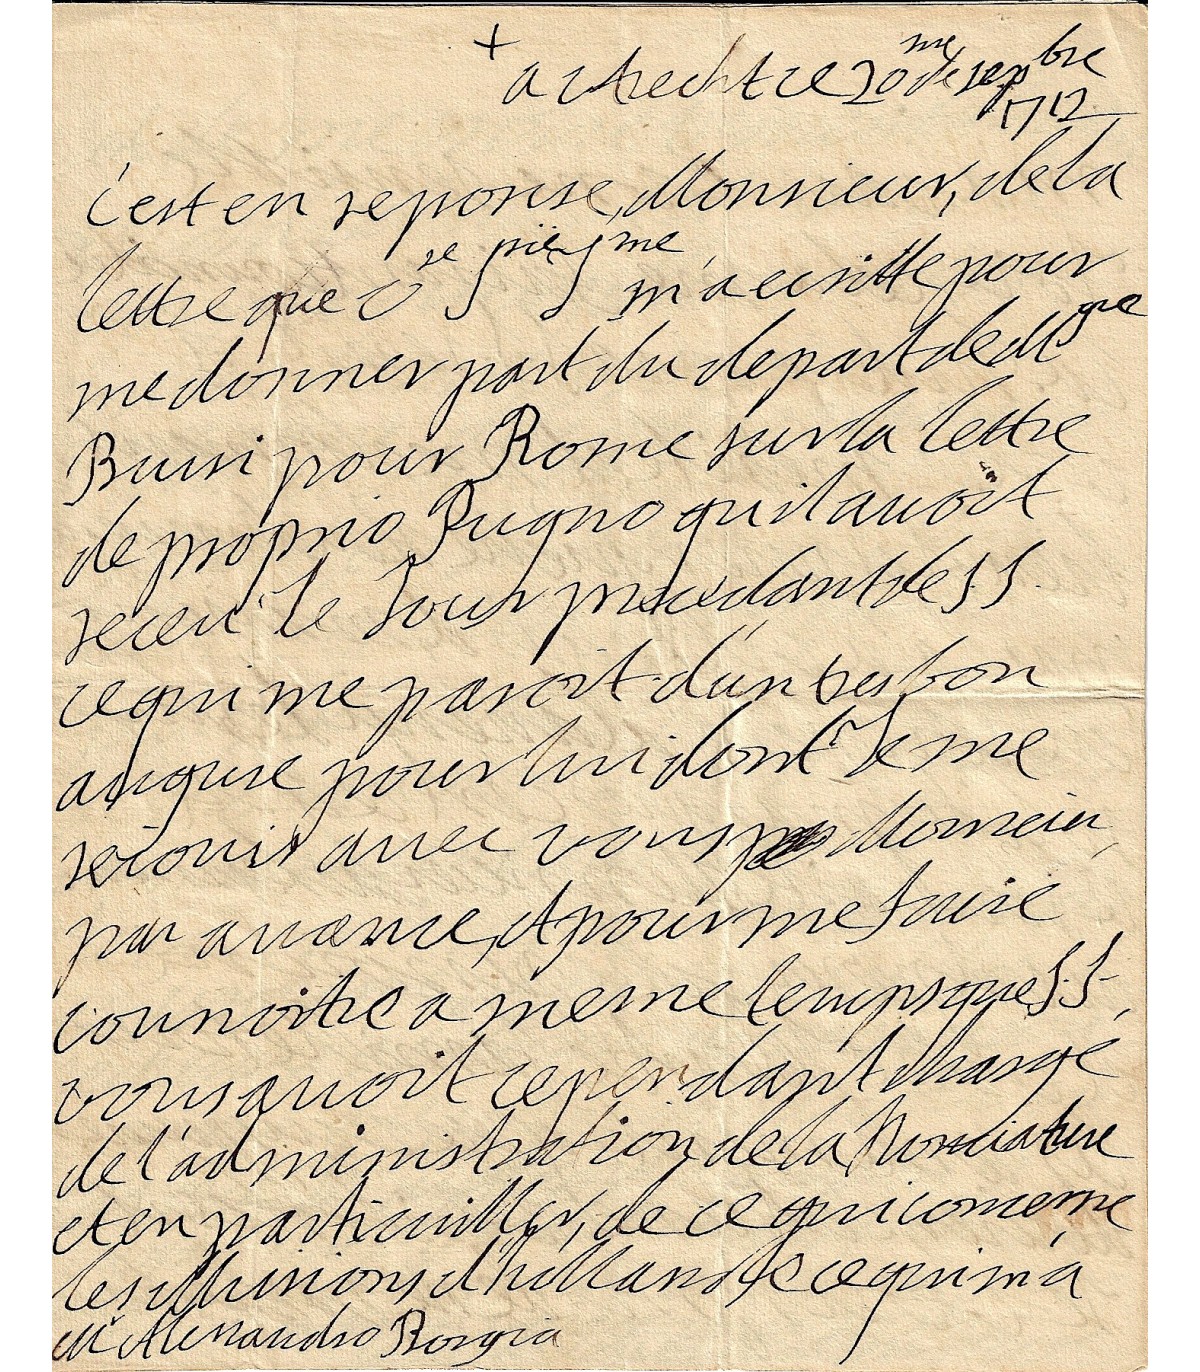 +
a Utrecht ce 20me de sepbre
1712
C'est en reponse, Monsieur, de la
lettre que m'a ecritte pour
me donner part du depart de Mgre
Bussi pour Rome sur la lettre
de proprio Pugno qu'il avoit
receu le Jour precedant de S.S.
ce qui me paroit d'un tres bon
augure pour lui dont Je me
rejouis avec vous Monsieur,
par avance, et pour me faire
connoitre a meme temps que S.S.
vous avoit cependant chargé
de l'administration de la Nonciature
et en particuillier, de ce qui concerne
les Missions d'hollande ce qui m'a
Mr Alessandro Borgia